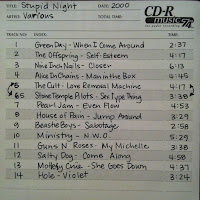 TITLE: Stupid Night DATE: 2000
ARTIST: Various TOTAL TIME:
CD-R music 74
TRACK NO. INDEX: TITLE: TIME:
1 Green Day - When I Come Around 2:37
2 The Offspring - Self Esteem 4:17
3 Nine Inch Nails - Closer 6:13
4 Alice In Chains - Man in the Box 4:45
5 The Cult - Love Removal Machine 5:17
6 Stone Temple Pilots - Sex Type Thing 3:38
7 Pearl Jam - Even Flow 4:53
8 House of Pain - Jump Around 3:37
9 Beastie Boys - Sabotage 2:58
10 Ministry - N.W.O. 5:29
11 Guns N Roses - My Michelle 3:38
12 Salty Dog - Come Along 4:58
13 Motley Crue - She Goes Down 4:37
14 Hole - Violet 3:24